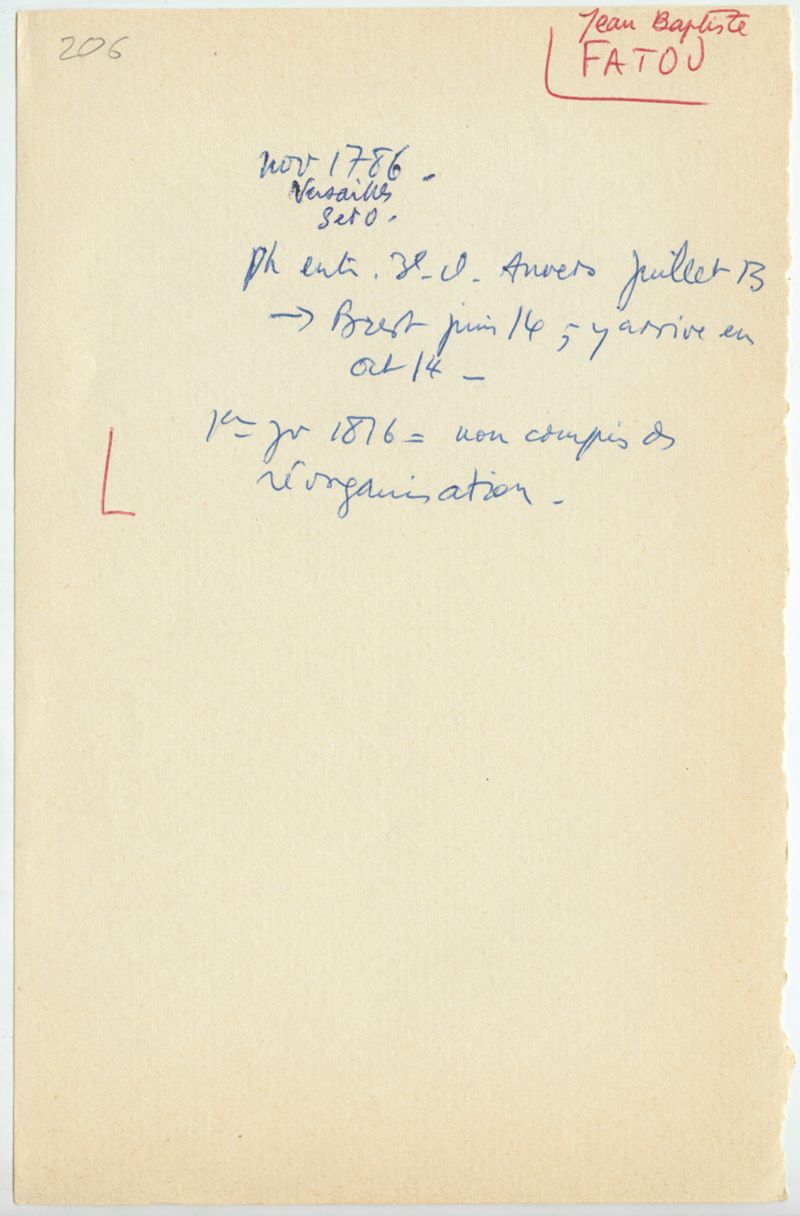 206
Jean Baptiste
FATOU
nov 1786.
Versailles
S et O.
Ph entr. 3e cl. Anvers juillet 13
→ Brest juin 14 ; y arrive en
oct 14 —
1er jv 1816 = non compris ds
réorganisation.